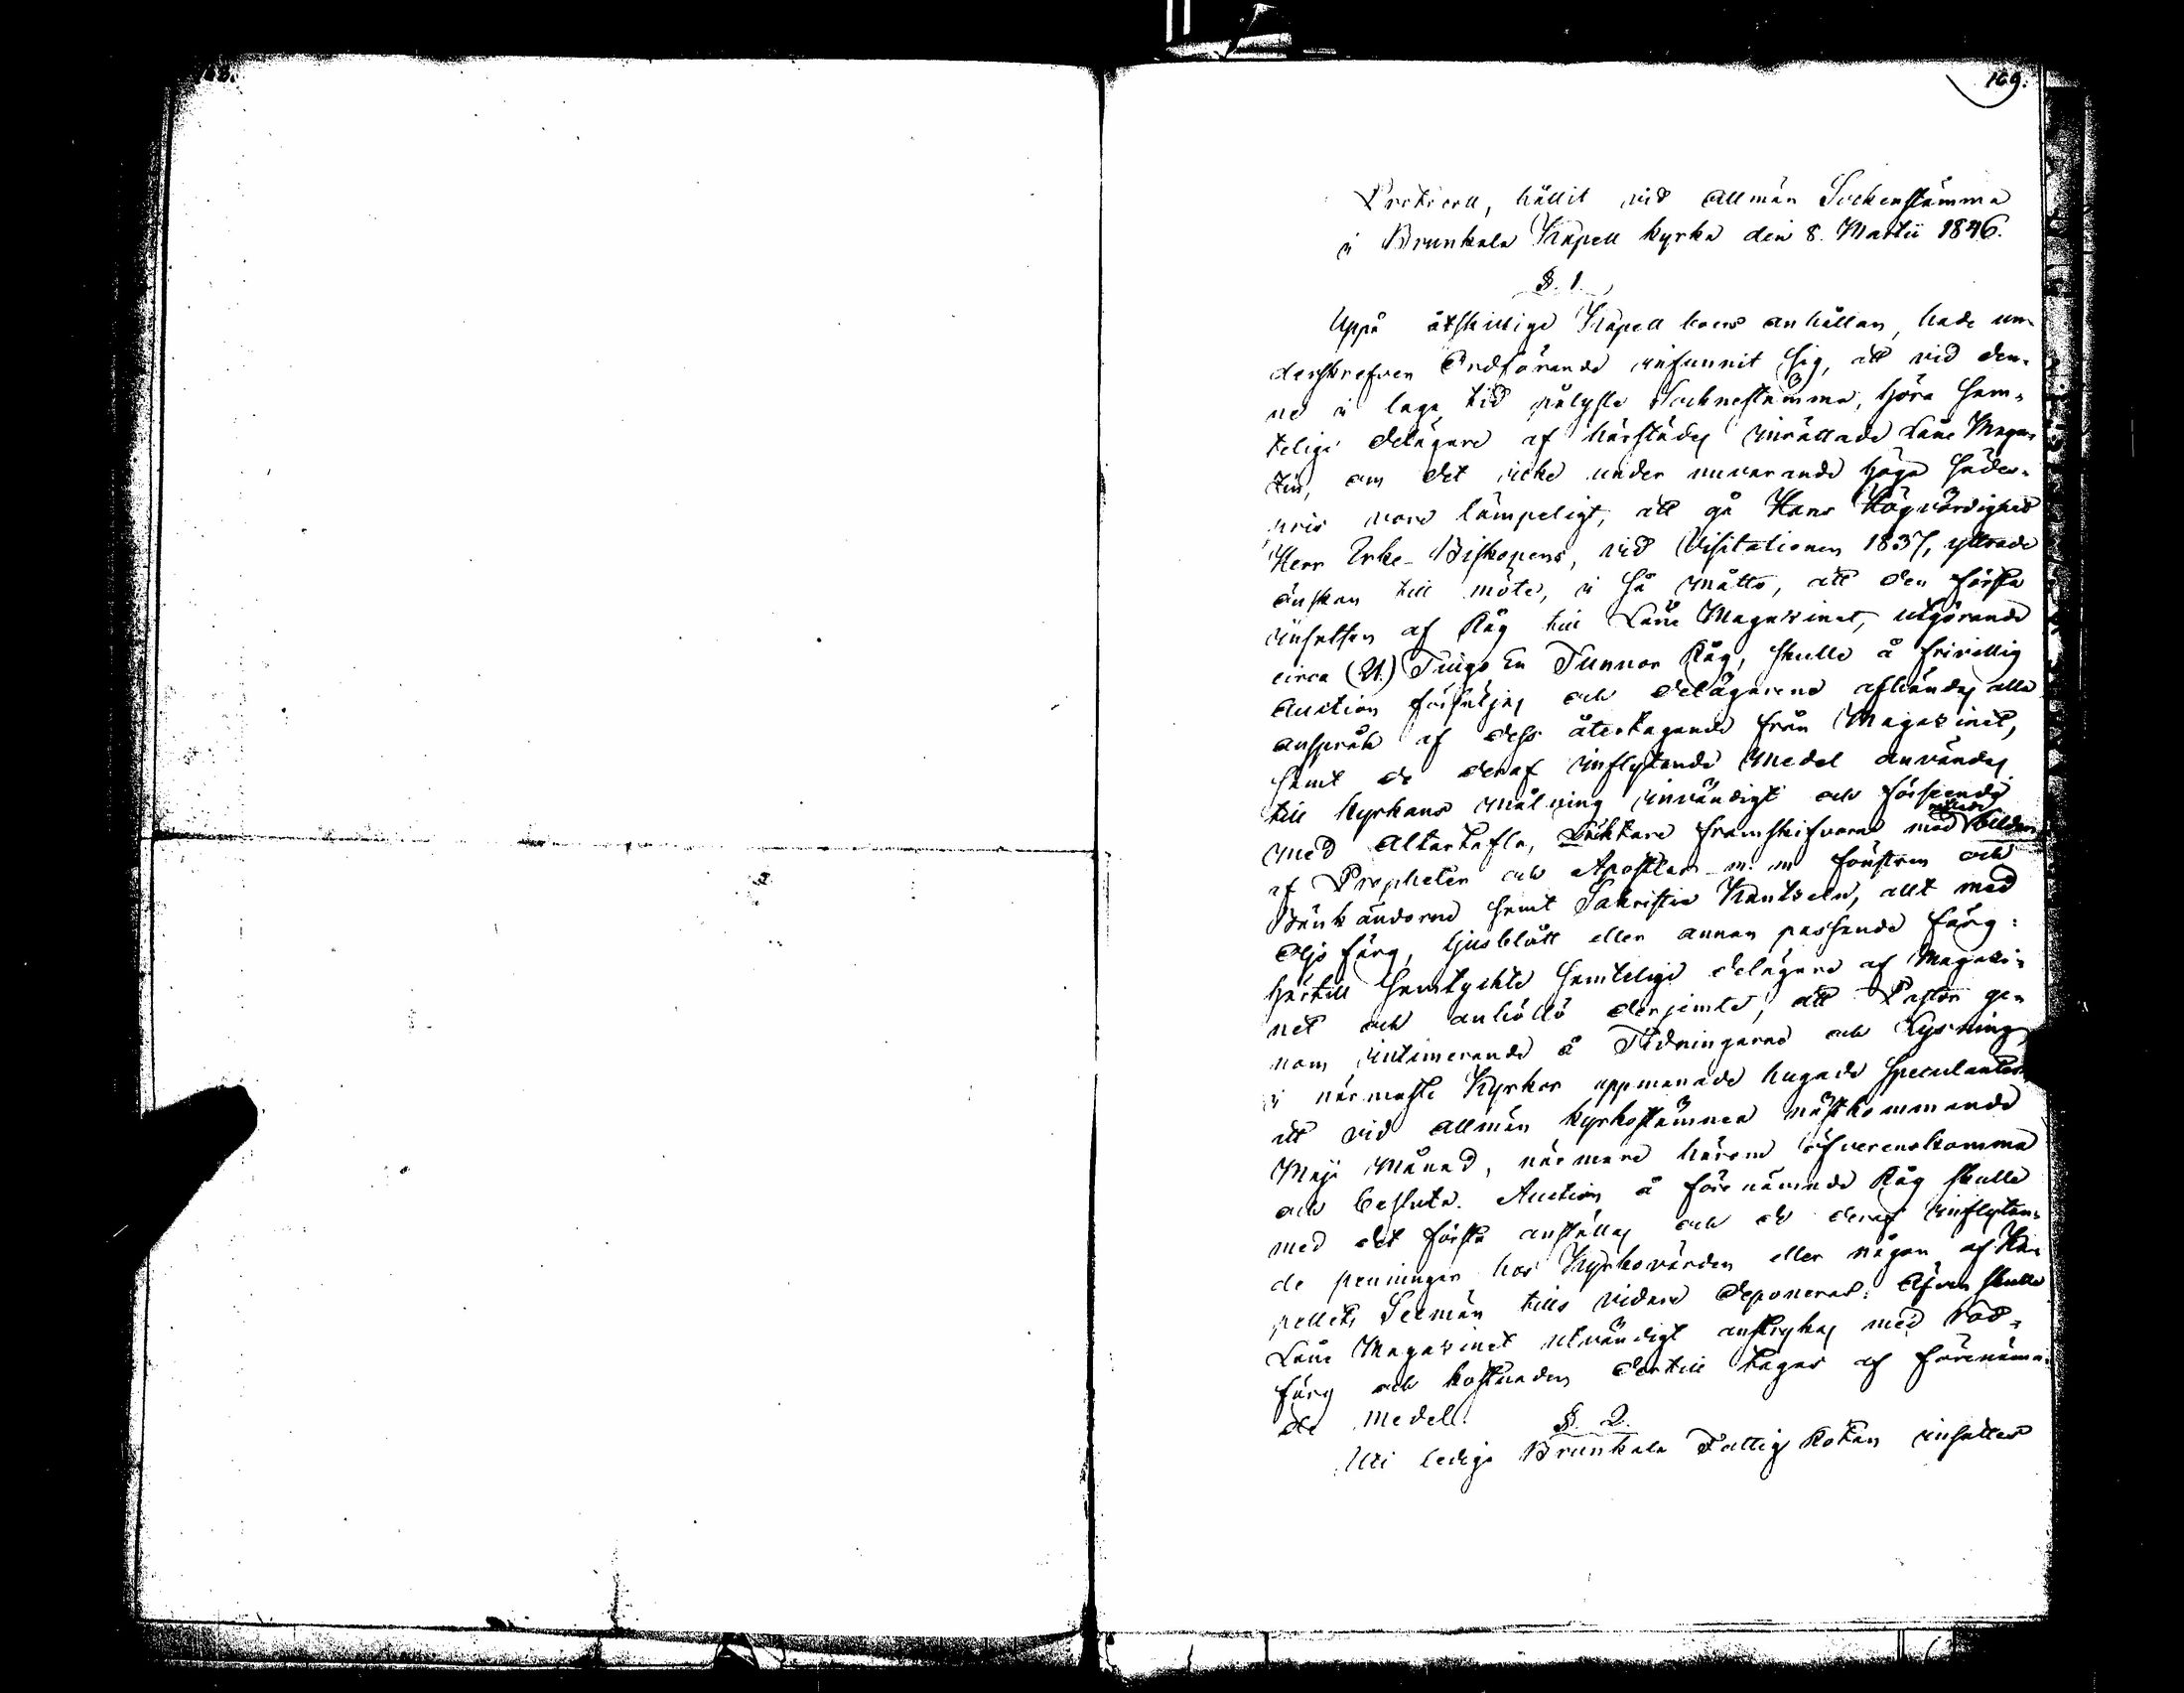 168.
169.
Protocoll, hållit vid allmän Sockenstämma
i Brunkala Kapell kyrka den 8. Martii 1846.
§. 1.
Uppå åtskillige Kapell boers anhållan, hade un-
derskrefven Ordförande infunnit sig, att vid den-
ne i laga tid pålyste Socknestämma, höra sam-
telige delägare af härstädes inrättade Låne Maga-
zin, om det icke under nuvarande höga sädes-
pris vore lämpeligt, att gå Hans Högvördighet
Herr Erke-Biskopens, vid Visitationen 1837, yttrade
önskan till möte, i så måtto, att den första
insatsen af Råg till Låne Magazinet, utgörande
circa (21.) Tiugo En Tunnor Råg, skulle å frivillig
Auction försäljas och delägarene afhändas alla
anspråk af dess återtagande från Magazinet,
samt de deraf inflytande medel användas
till kyrkans målning invändigt och förseende
med Altartafla, Läktare framskifvorne med målade bilder
af Propheter och Apostlar m. m fönstren och
Bänk ändorne samt Sakristie Kantzeln, allt med
Oljo färg, ljusblått eller annan passande färg:
härtill samtyckte samtelige delägare af Magazi-
net och anhöllo derjemte, att Pastor ge-
nom intimerande å Tidningarne och Lysning
i närmaste Kyrkor uppmanade hugade speculanter
att vid allmän kyrkostämma nästkommande
Maji Månad, närmare härom öfverenskomma
och besluta. Auction å förenämnde Råg skulle
med det första anställas och de deraf inflytan-
de penningar hos Kyrkovärden eller någon af Ka-
pellets Sexmän tills vidare deponeras: Äfven skulle
Låne Magazinet utvändigt anstrykas med röd-
färg och kostnaden dertill tagas af förenämn-
de medel.
§. 2.
Uti lediga Brunkala Fattig Rotan insattes